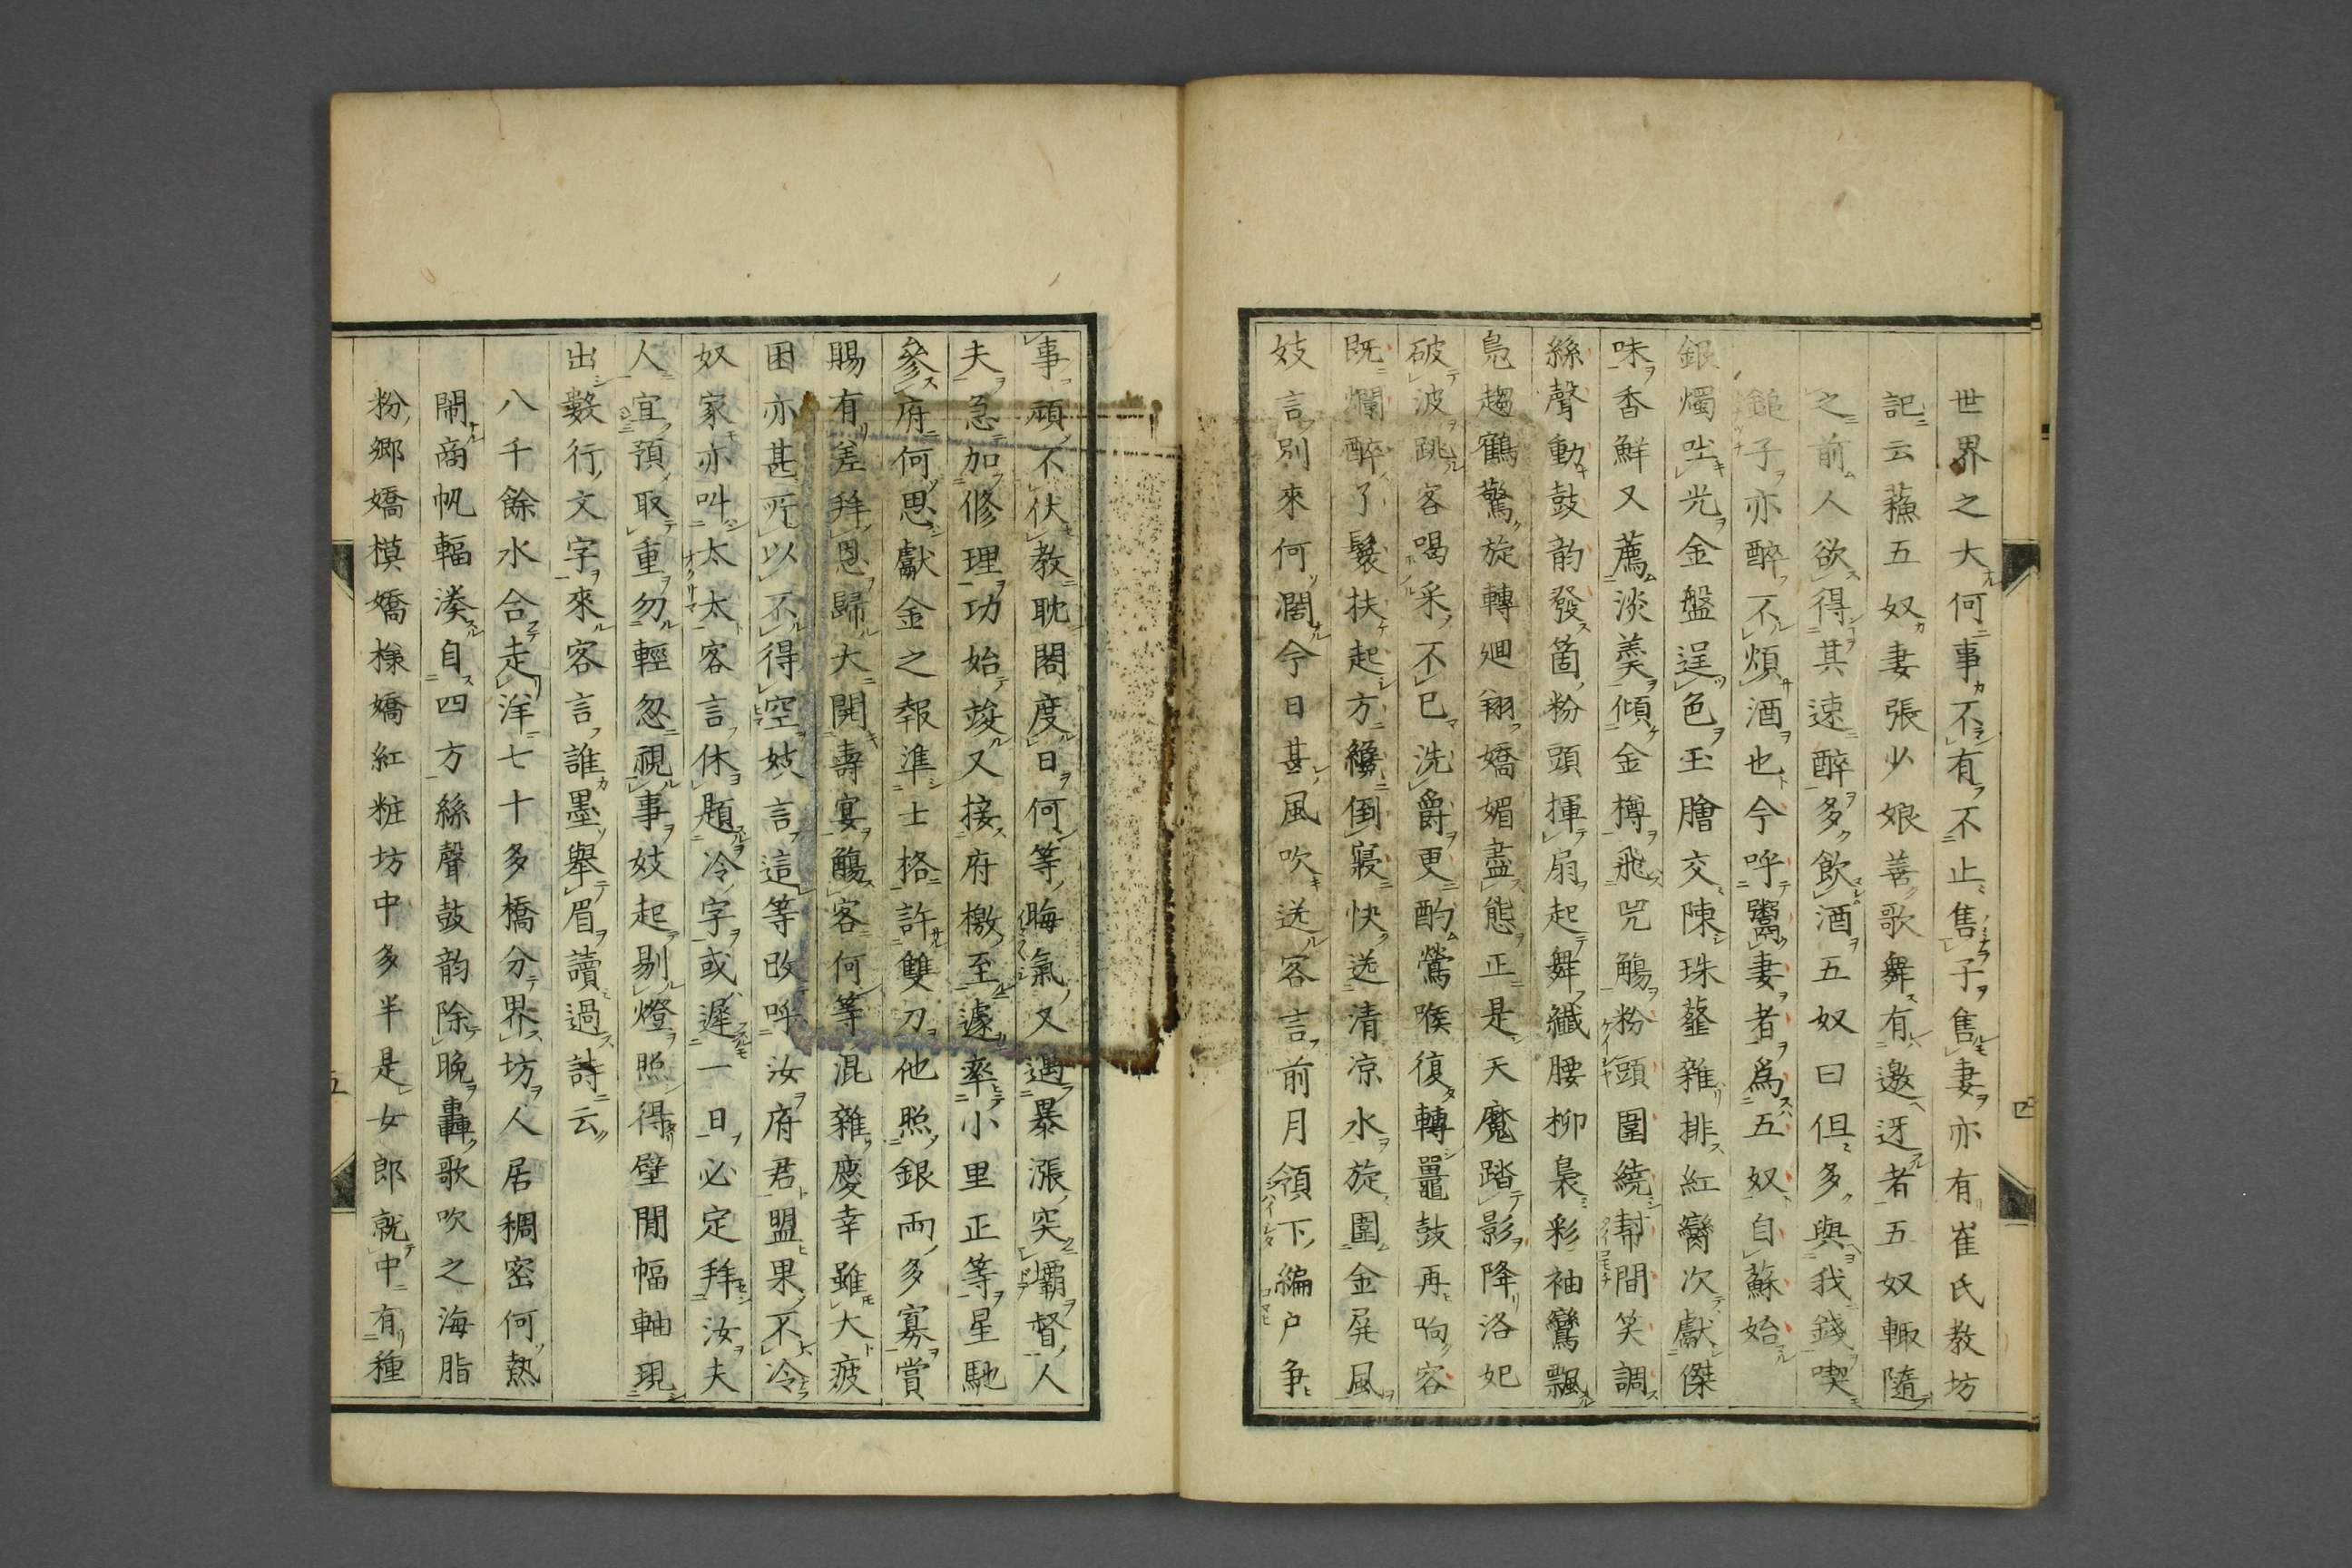 世界之大何事不有不止售子售妻亦有崔氏教坊
記云蘓五奴妻張少娘善歌舞有邀迓者五奴輙隨
之前人欲得其速醉多飲酒五奴曰但多與我錢喫
鎚子亦醉不煩酒也今呼鬻妻者爲五奴自蘇始
銀燭吐光金盤逞色玉膾交陳珠虀雜排紅臠次獻傑
味香鮮又薦淡羹傾金樽飛兕觴粉頭圍繞幇間笑調
絲聲動鼓韵發箇粉頭揮扇起舞纎腰柳裊彩袖鸞飄
鳬趨鶴驚旋轉廻翔嬌媚盡態正是天魔踏影降洛妃
破波跳客喝采不已洗爵更酌鶯喉復轉鼉鼓再响容
既爛醉了鬟扶起方纔倒寢快送清凉水旋圍金屏風
妓言別來何濶今日甚風吹送客言前月領下編戸争
事頑不伏教耽閣度日何等晦氣又遇暴漲突壩督人
夫急加修理功始竣又接府檄至遽率小里正等星馳
參府何思獻金之報準士格許雙刀他照銀兩多寡賞
賜有差拜恩歸大開壽宴觴客何等混雜慶幸雖大疲
困亦甚所以不得空妓言這等改呼汝府君盟果不冷
奴家亦叫太太客言休題冷字或遲一日必定拜汝夫
人宜預取重勿輕忽視事妓起剔燈照得壁間幅軸現
出數行文字來客言誰墨舉眉讀過詩云
八千餘水合走洋七十多橋分界坊人居稠密何熱
閙商帆輻湊自四方絲聲鼓韵除晩轟歌吹之海脂
粉郷嬌模嬌様嬌紅粧坊中多半是女郎就中有種